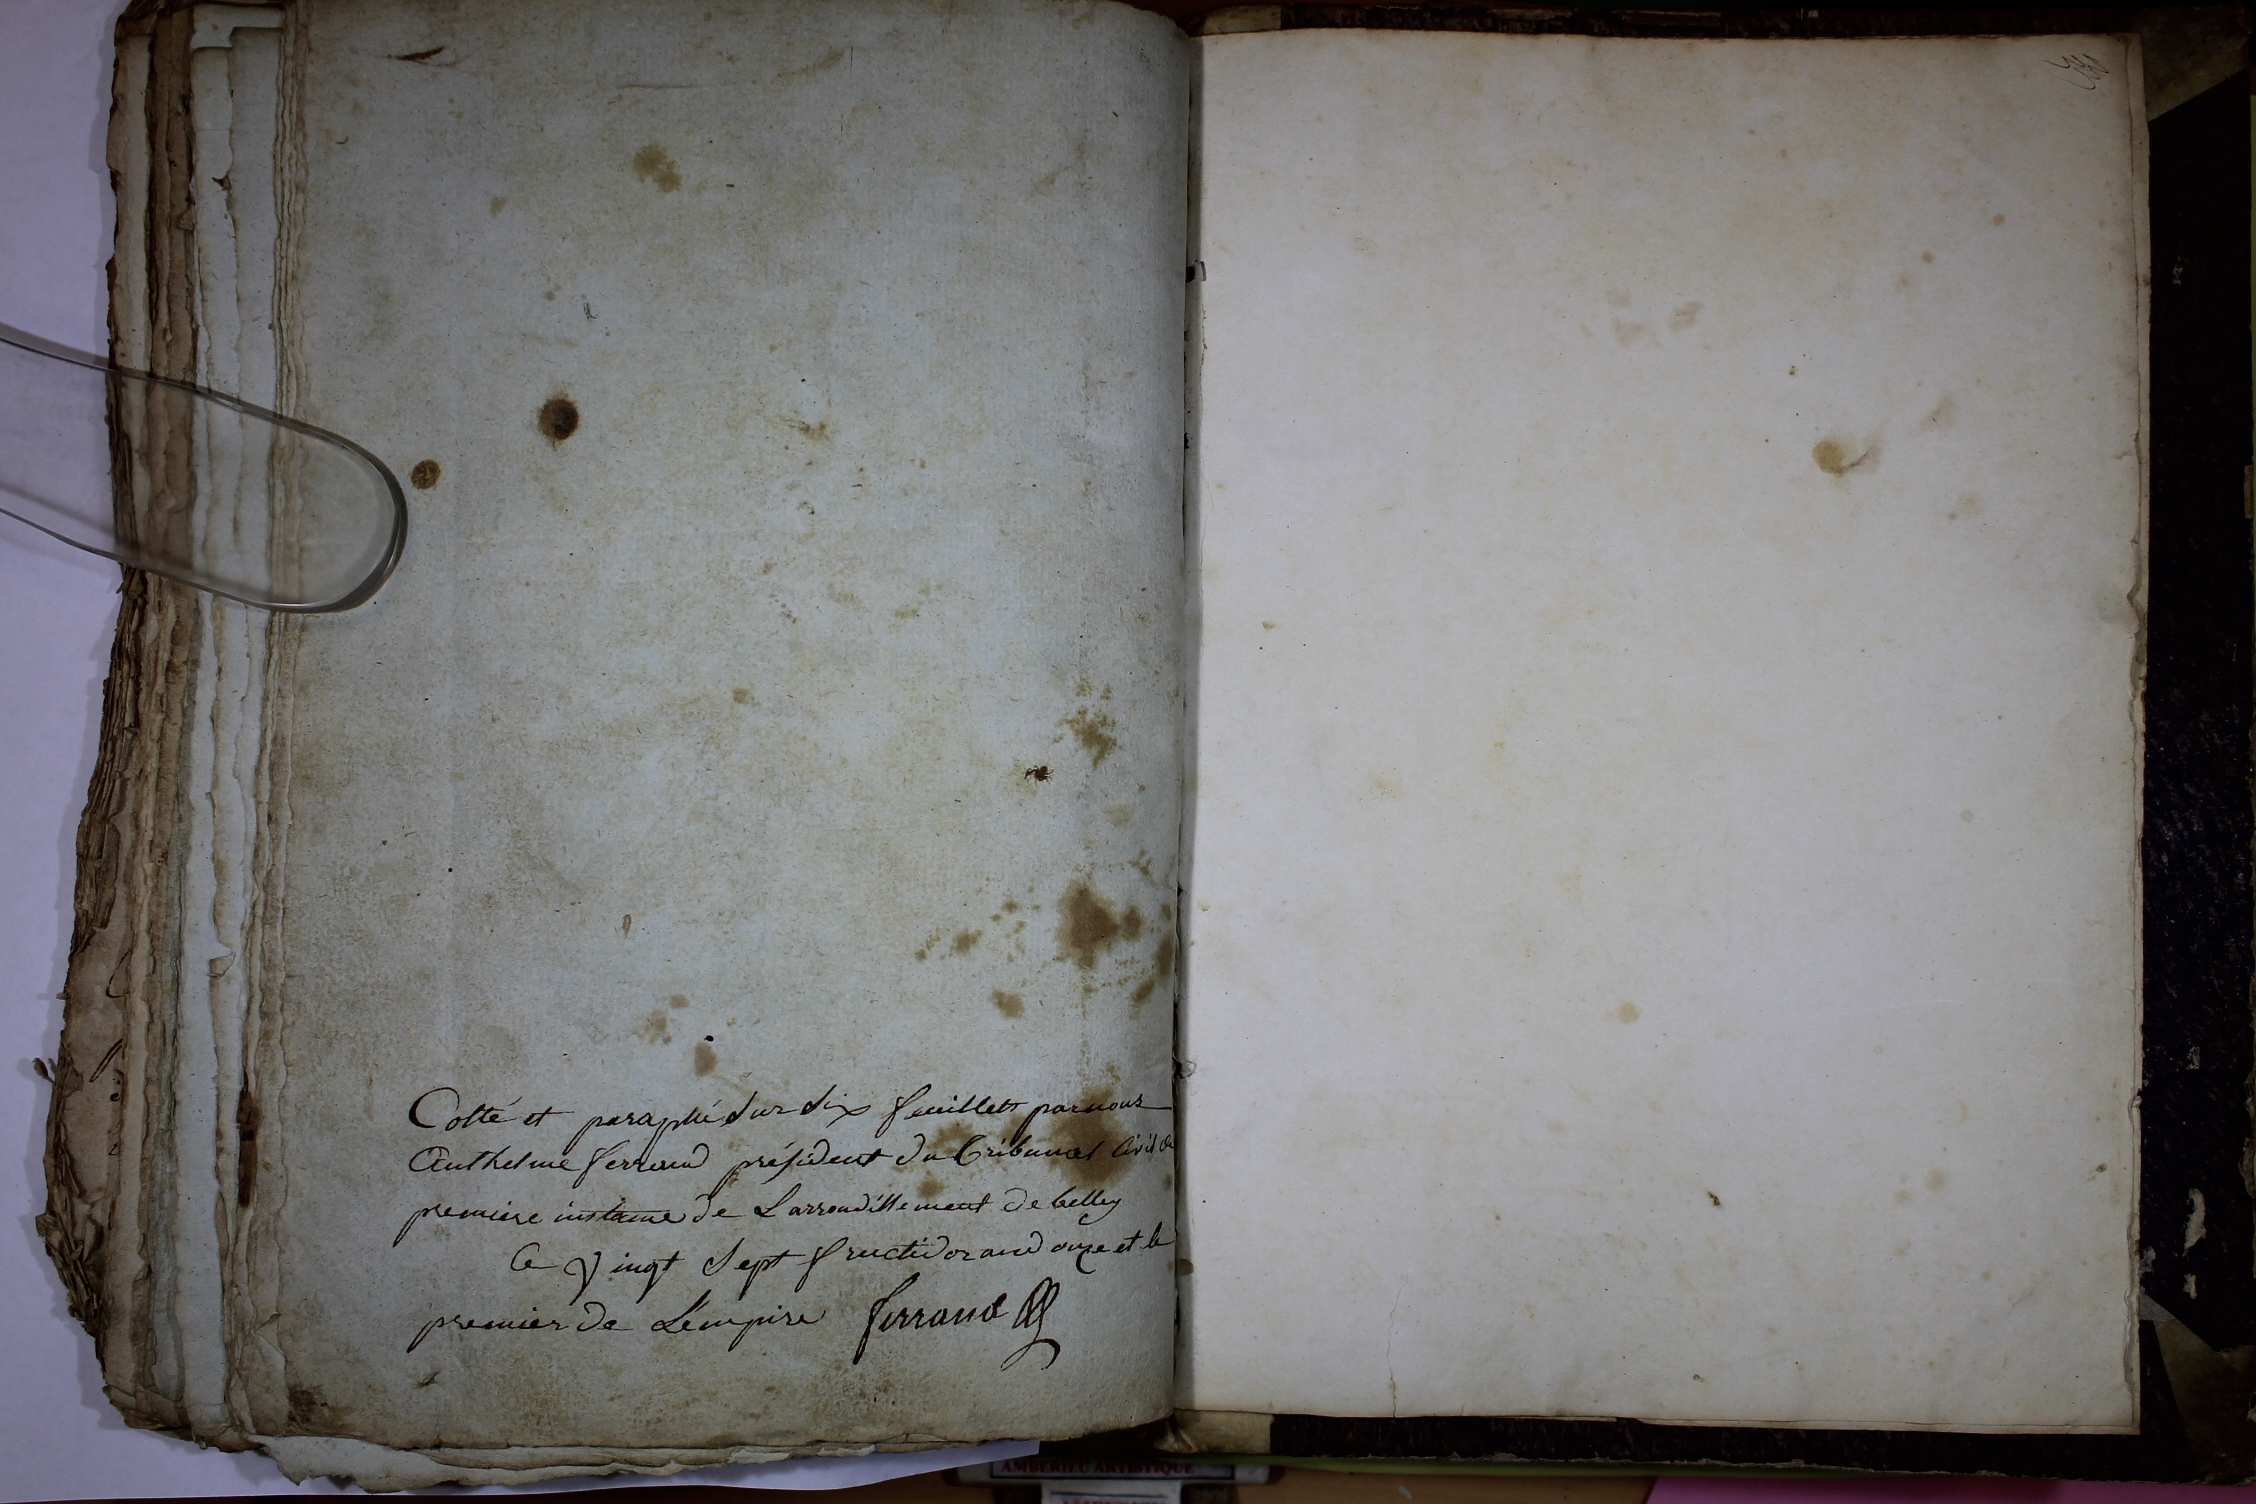 Cotté et paraphé sur dix feuillets par nous
Anthelme ferrand président du tribunal Civil de
premiere instance de Larrondissement de belley
Ce vingt sept fructidor and onze et le
premier de L'empire ferrand
AMBERIEU ARTISTIQUE